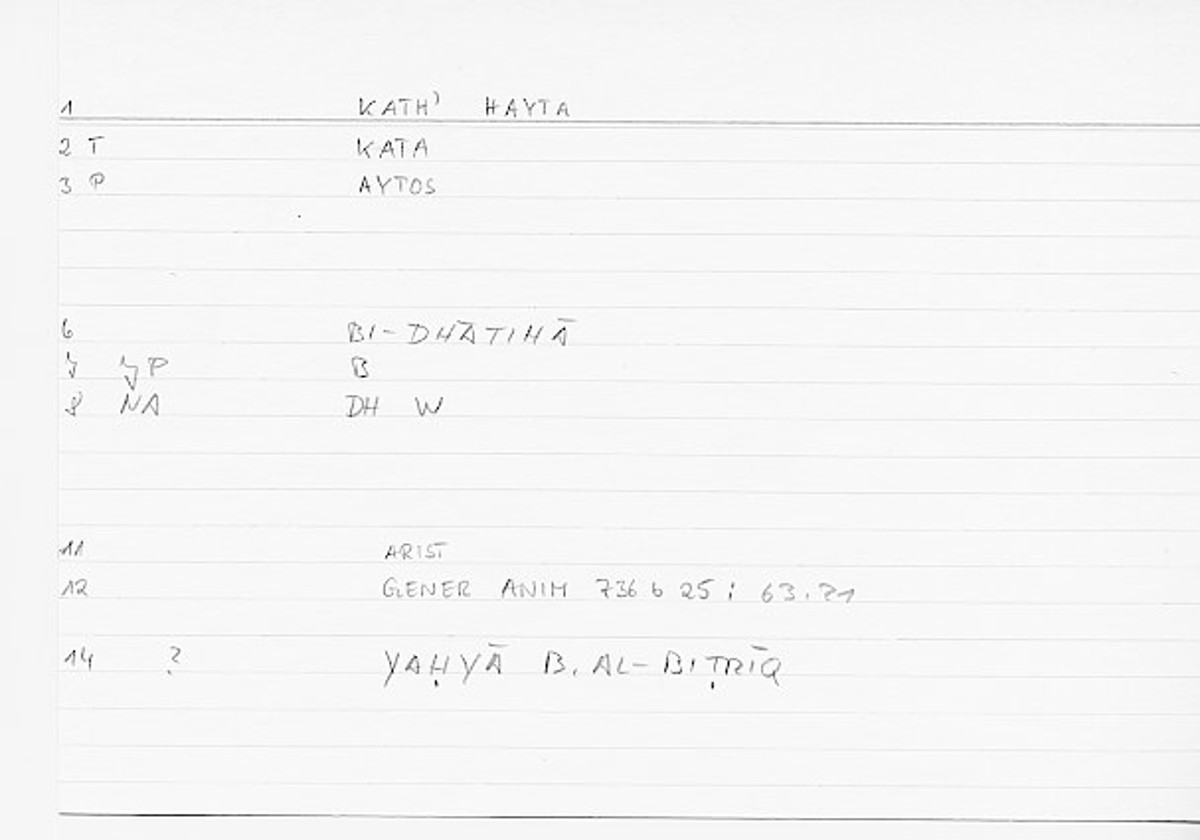 1 KATH' HAYTA
2 T KATA
3 P AYTOS
6 BI-DHĀTIHĀ
7 JP B
8 NA DH W
11 ARIST
12 GENER ANIM 736 b 25; 63.21
14 ? YAḤYĀ B. AL-BIṬRĪQ